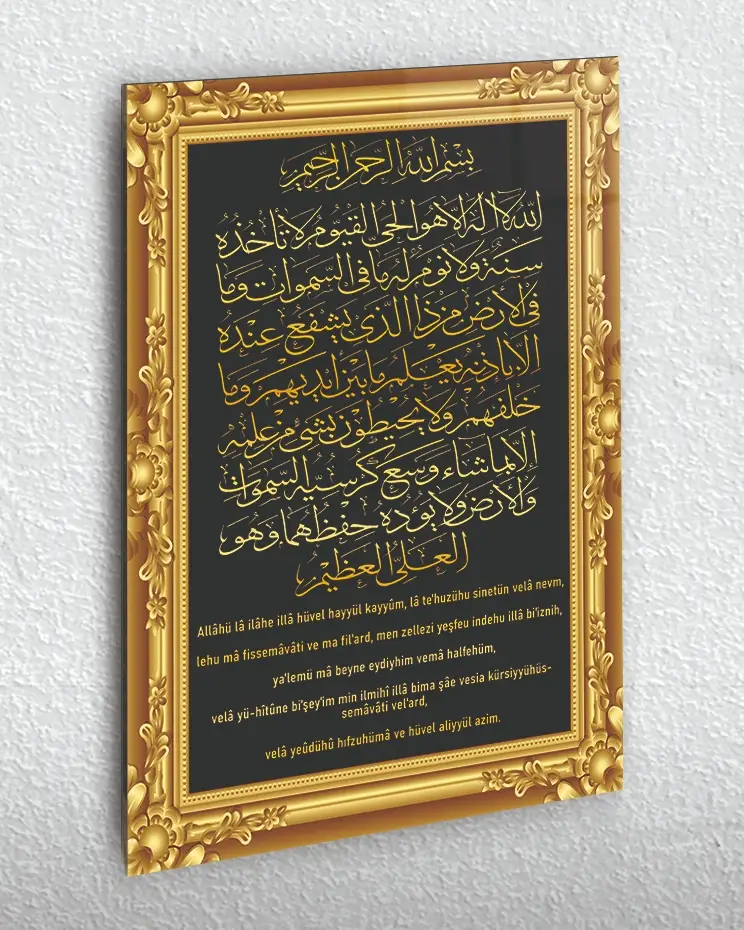 بسم الله الرحمن الرحيم
الله لا اله الا هو الحى القيوم لا تأخذه
سنة ولا نوم له ما فى السموات وما
فى الأرض من ذا الذى يشفع عنده
الا باذنه يعلم ما بين ايديهم وما
خلفهم ولا يحيطون بشئ من علمه
الا بما شاء وسع كرسيه السموات
والأرض ولا يؤده حفظهما وهو
العلى العظيم
Allâhü lâ ilâhe illâ hüvel hayyül kayyûm, lâ te'huzühu sinetün velâ nevm,
lehu mâ fissemâvâti ve ma fil'ard, men zellezi yeşfeu indehu illâ bi'iznih,
ya'lemü mâ beyne eydiyhim vemâ halfehüm,
velâ yü-hîtûne bi'şey'im min ilmihî illâ bima şâe vesia kürsiyyühüs-
semâvâti vel'ard,
velâ yeûdühû hıfzuhümâ ve hüvel aliyyül azim.